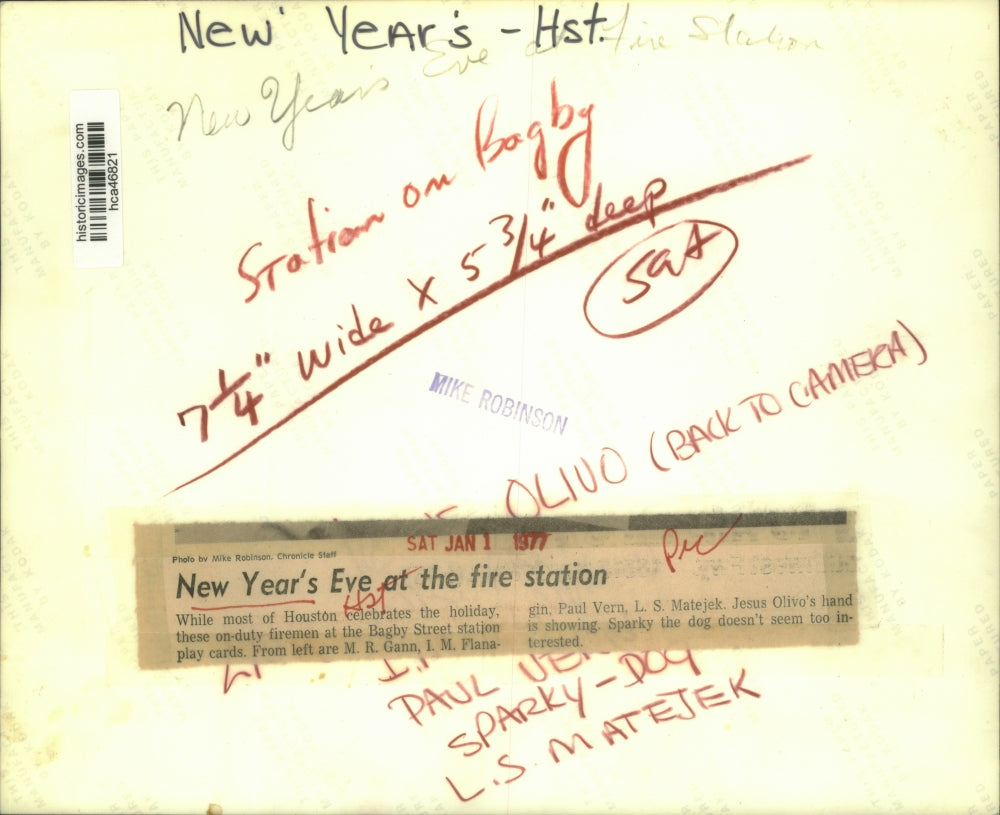 New Year's - Hst.
New Year's Eve at Fire Station
historicimages.com
hca46821
Station on Bagby
7 1/4" wide x 5 3/4" deep
Sat
MIKE ROBINSON
OLIVO (BACK TO CAMERA)
SAT JAN 1 1977
Pic
Photo by Mike Robinson, Chronicle Staff
New Year's Eve at the fire station
Hst
While most of Houston celebrates the holiday,
these on-duty firemen at the Bagby Street station
play cards. From left are M. R. Gann, I. M. Flana-
gin, Paul Vern, L. S. Matejek. Jesus Olivo's hand
is showing. Sparky the dog doesn't seem too in-
terested.
PAUL VERN
SPARKY - DOG
L.S. MATEJEK